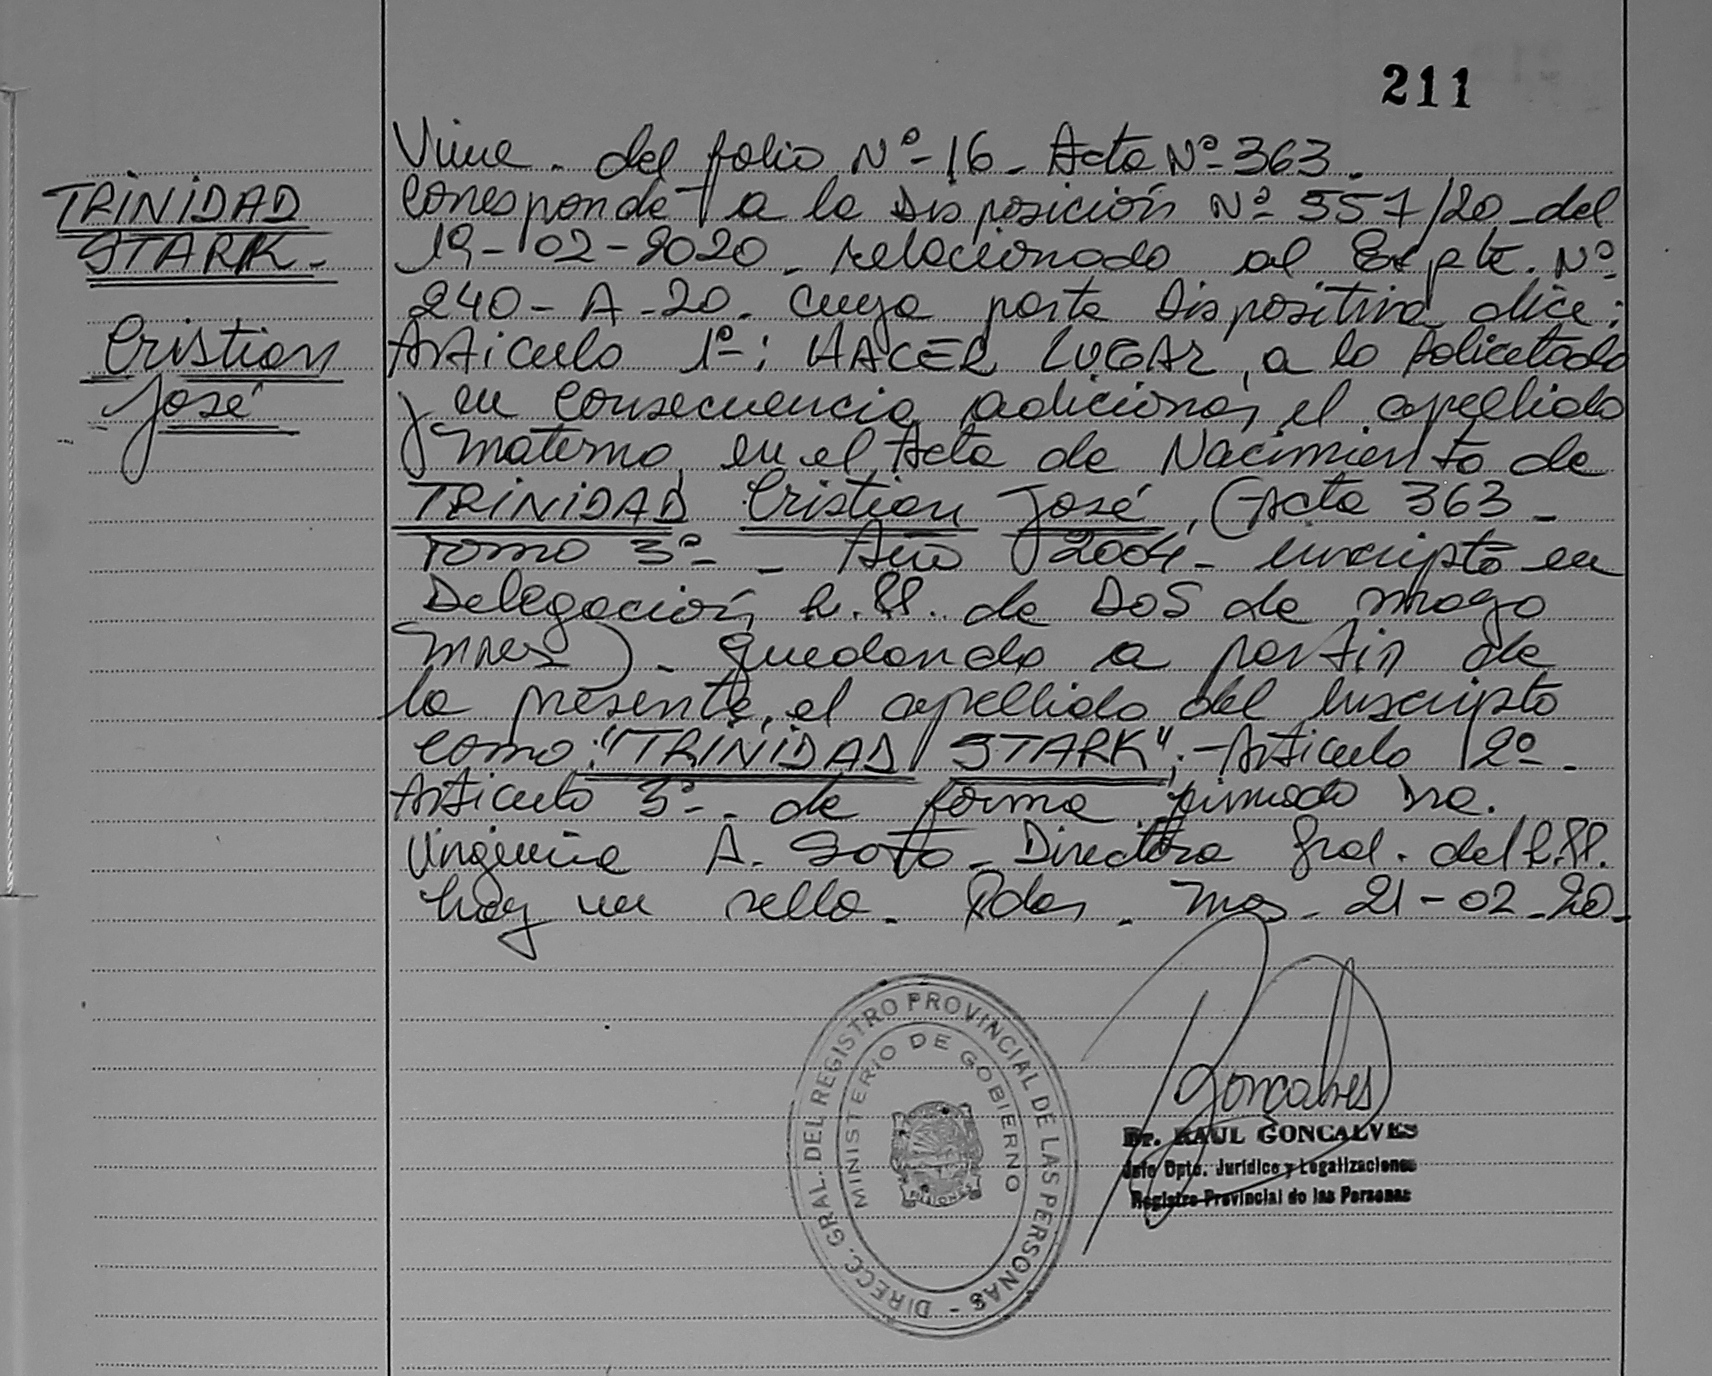 211
TRINIDAD
STARK-
Cristian
José
Viene. del folio Nº-16- Acta Nº-363.
Corresponde a la Disposición Nº 557/20-del
19-02-2020- relacionado al Expte. Nº
240-A-20. Cuya parte Dispositiva dice:
Articulo 1º: HACER LUGAR, a lo solicitado
y en consecuencia adicionar el apellido
materno, en el Acta de Nacimiento de
TRINIDAD Cristian José, (Acta 363-
Tomo 3º- - Año 2004- inscripto en
Delegación R.PP. de Dos de mayo
Mnes). quedando a partir de
la presente, el apellido del inscripto
como: "TRINIDAD STARK";-Articulo 2º-
Articulo 3º-. de forma firmado Dra.
Virginia A. Soto- Directora Gral. del R.PP.
hay un sello. Pdas. Mns- 21-02-20-
Goncalves
Dr. RAUL GONCALVES
Jefe Dpto. Jurídico y Legalizaciones
Registro Provincial de las Personas
DIRECC. GRAL. DEL REGISTRO PROVINCIAL DE LAS PERSONAS -
MINISTERIO DE GOBIERNO
MISIONES